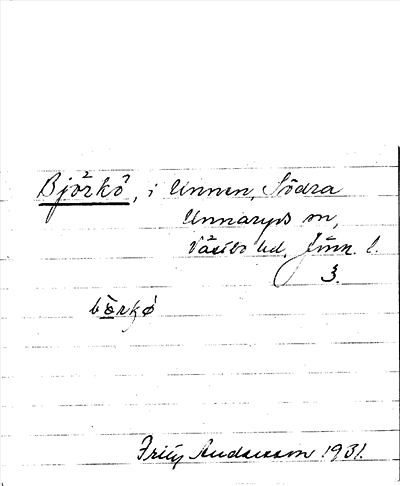 Björkö, i Unnen, Södra
Unnaryds sn,
Västbo hd, Jönk. l.
3.
Fritz Andersson 1931.